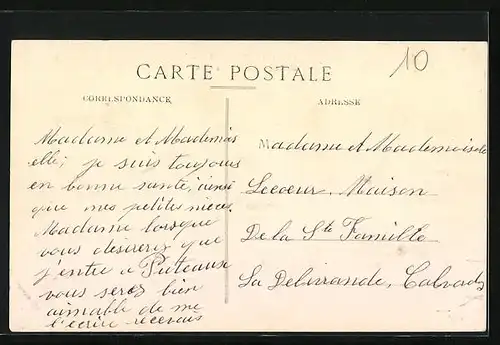 10
CARTE POSTALE
CORRESPONDANCE
ADRESSE
Madame et Mademois
elle, je suis toujours
en bonne santé, ainsi
que mes petites nieces.
Madame lorsque
vous desirerez que
j'entre a Puteaux
vous serez bien
aimable de me
l'écrire recevais
Madame et Mademoiselle
Lecoeur, Maison
De la Ste Famille
La Delivrande, Calvados